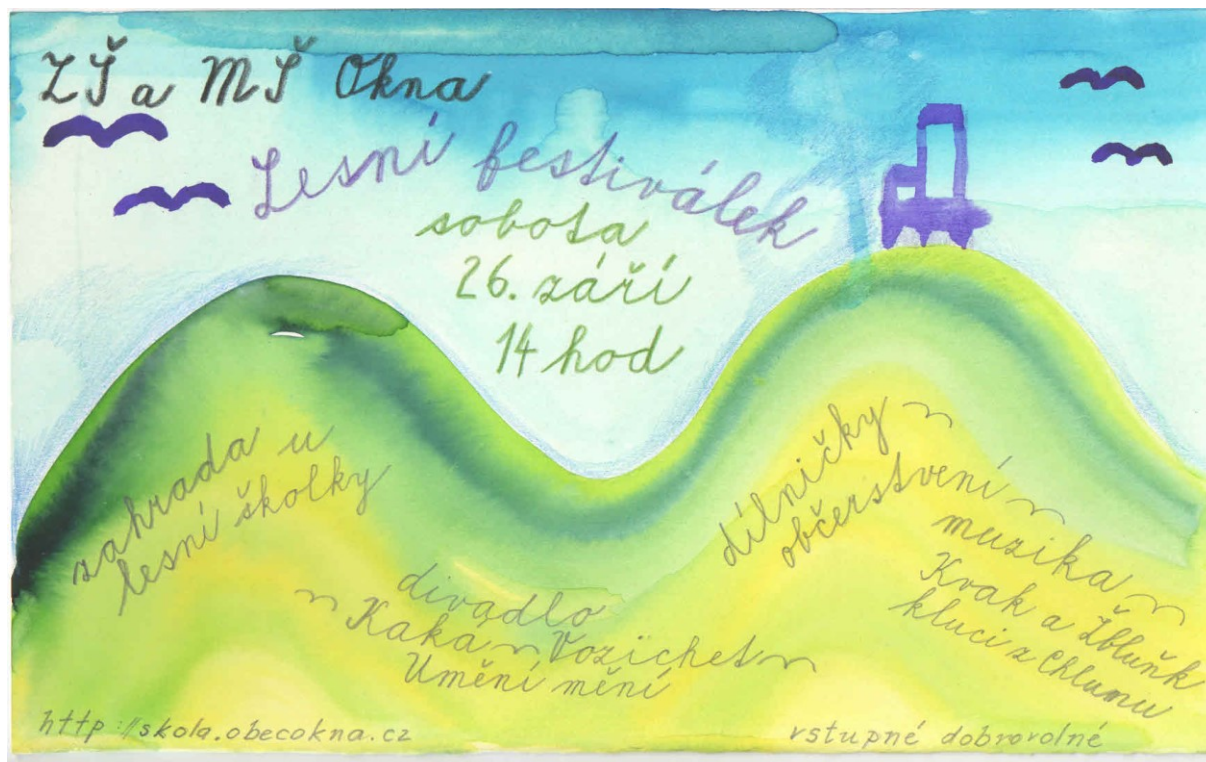 ZŠ a MŠ Okna
Lesní festiválek
sobota
26. září
14 hod
zahrada u
lesní školky
divadlo
Kaka ~ Vozichet ~
Umění mění
dílničky ~
občerstvení ~
muzika ~
Kvak a Žbluňk
kluci z Chlumu
http://skola.obecokna.cz
vstupné dobrovolné